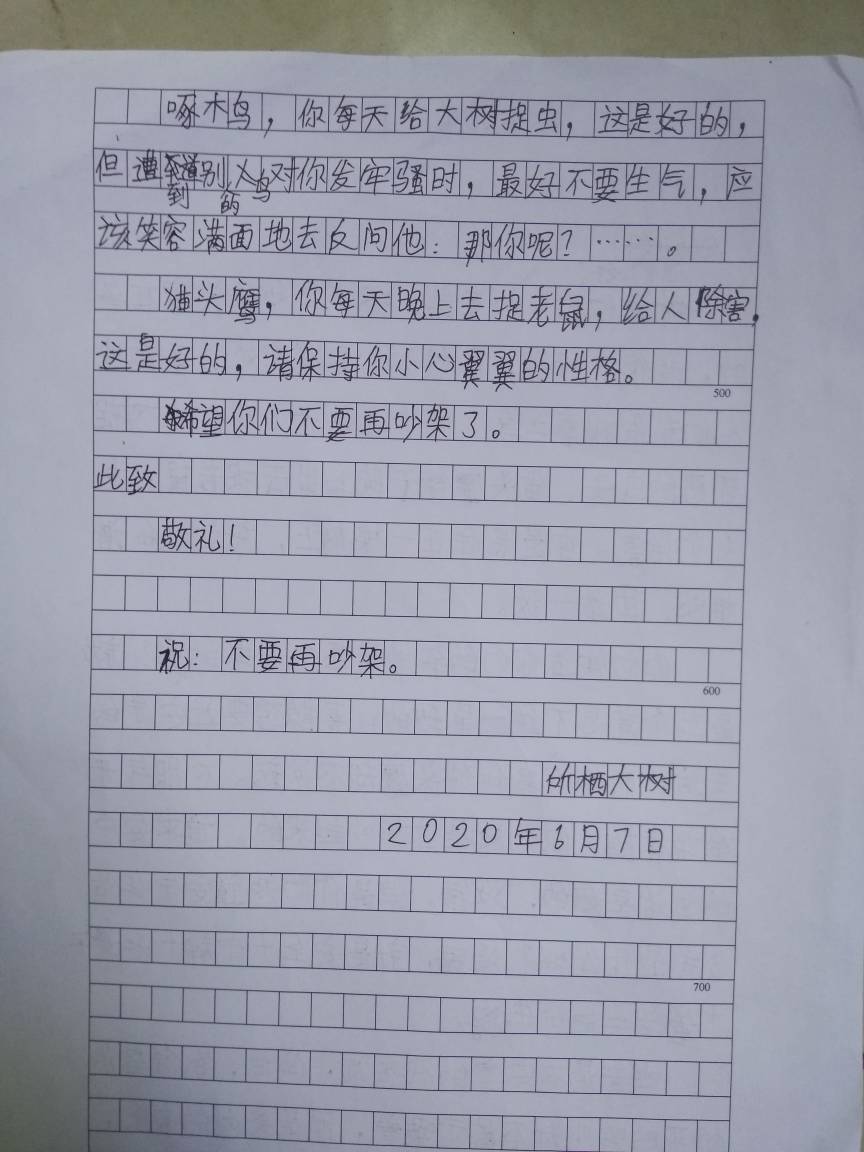 啄木鸟，你每天给大树捉虫，这是好的，
但遭到别的鸟对你发牢骚时，最好不要生气，应
该笑容满面地去反问他：那你呢？……。
猫头鹰，你每天晚上去捉老鼠，给人除害，
这是好的，请保持你小心翼翼的性格。
500
希望你们不要再吵架了。
此致
敬礼！
祝：不要再吵架。
600
所栖大树
2020年6月7日
700